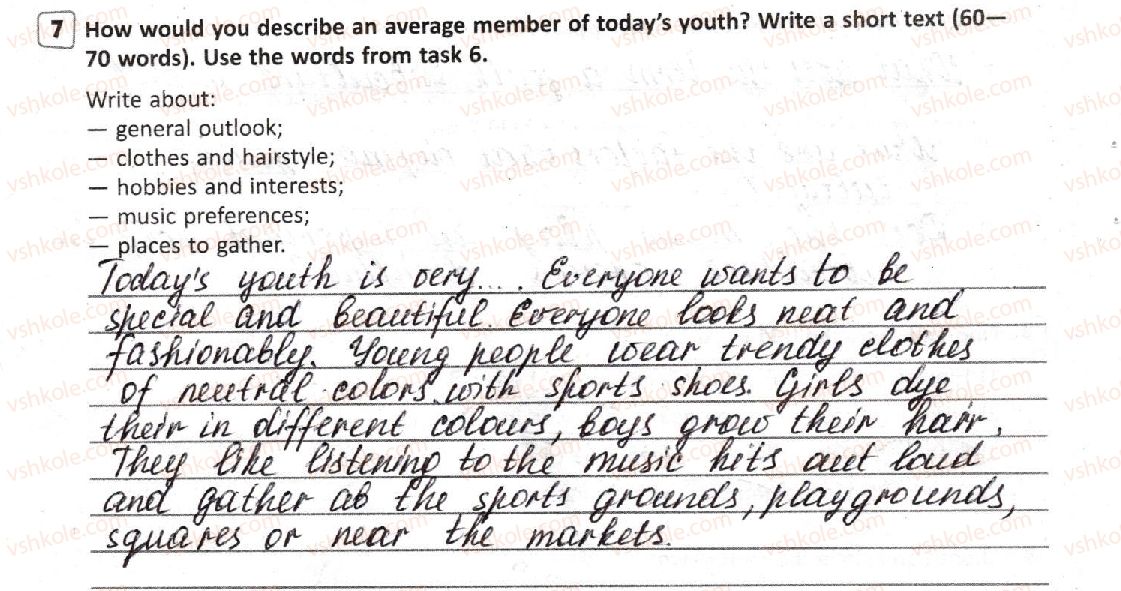 7 How would you describe an average member of today's youth? Write a short text (60—
70 words). Use the words from task 6.
Write about:
— general outlook;
— clothes and hairstyle;
— hobbies and interests;
— music preferences;
— places to gather.
Today's youth is very.... Everyone wants to be
special and beautiful. Everyone looks neat and
fashionably. Young people wear trendy clothes
of neutral colors with sports shoes. Girls dye
their in different colours, boys grow their hair.
They like listening to the music hits out loud
and gather ab the sports grounds, playgrounds,
squares or near the markets.
vshkole.com